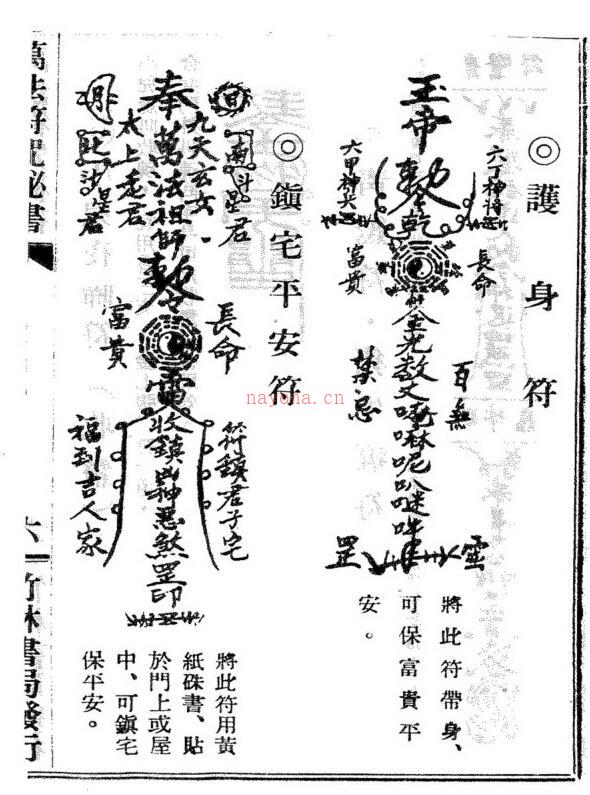 ◎護身符
玉帝
勅
乾
六丁神將
六甲神兵
長命
富貴
百無
禁忌
罡
將此符帶身、
可保富貴平
安。
◎鎮宅平安符
奉萬法祖師
勅
雷
收鎮凶神惡煞罡印
九天玄女
太上老君
南斗星君
北斗星君
長命
富貴
符鎮君子宅
福到吉人家
將此符用黃
紙硃書、貼
於門上或屋
中、可鎮宅
保平安。
萬法符咒祕書
六
竹林書局發行
nayona.cn